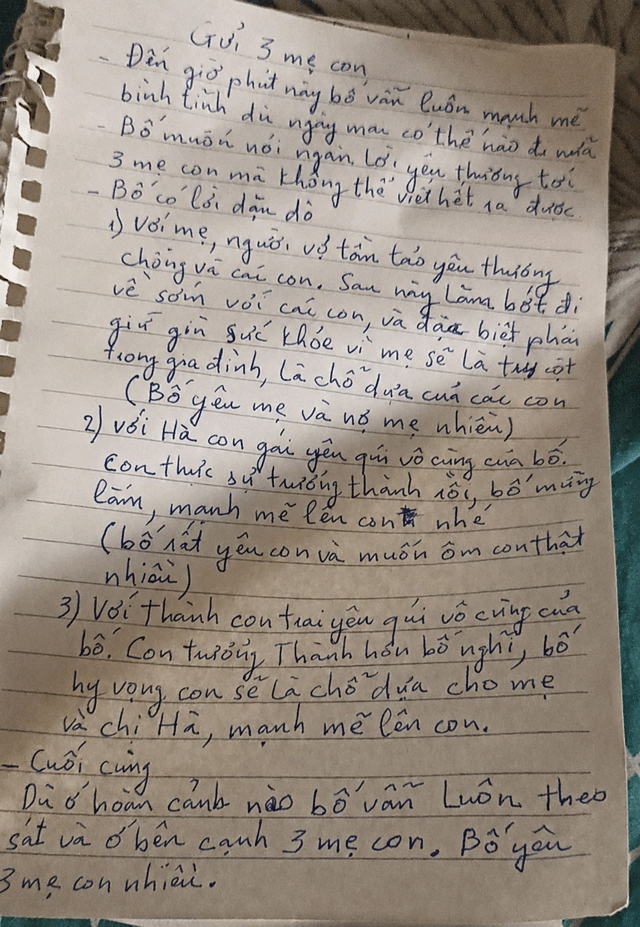 Gửi 3 mẹ con,
- Đến giờ phút này bố vẫn luôn mạnh mẽ
bình tĩnh dù ngày mai có thế nào đi nữa
- Bố muốn nói ngàn lời yêu thương tới
3 mẹ con mà không thể viết hết ra được
- Bố có lời dặn dò
1) Với mẹ, người vợ tần tảo yêu thương
chồng và các con. Sau này làm bớt đi
về sớm với các con, và đặc biệt phải
giữ gìn sức khỏe vì mẹ sẽ là trụ cột
trong gia đình, là chỗ dựa của các con
(Bố yêu mẹ và nợ mẹ nhiều)
2) Với Hà con gái yêu quí vô cùng của bố.
Con thực sự trưởng thành rồi, bố mừng
lắm, mạnh mẽ lên con nhé
(bố rất yêu con và muốn ôm con thật
nhiều)
3) Với Thành con trai yêu quí vô cùng của
bố. Con trưởng Thành hơn bố nghĩ, bố
hy vọng con sẽ là chỗ dựa cho mẹ
và chị Hà, mạnh mẽ lên con.
- Cuối cùng
Dù ở hoàn cảnh nào bố vẫn luôn theo
sát và ở bên cạnh 3 mẹ con. Bố yêu
3 mẹ con nhiều.